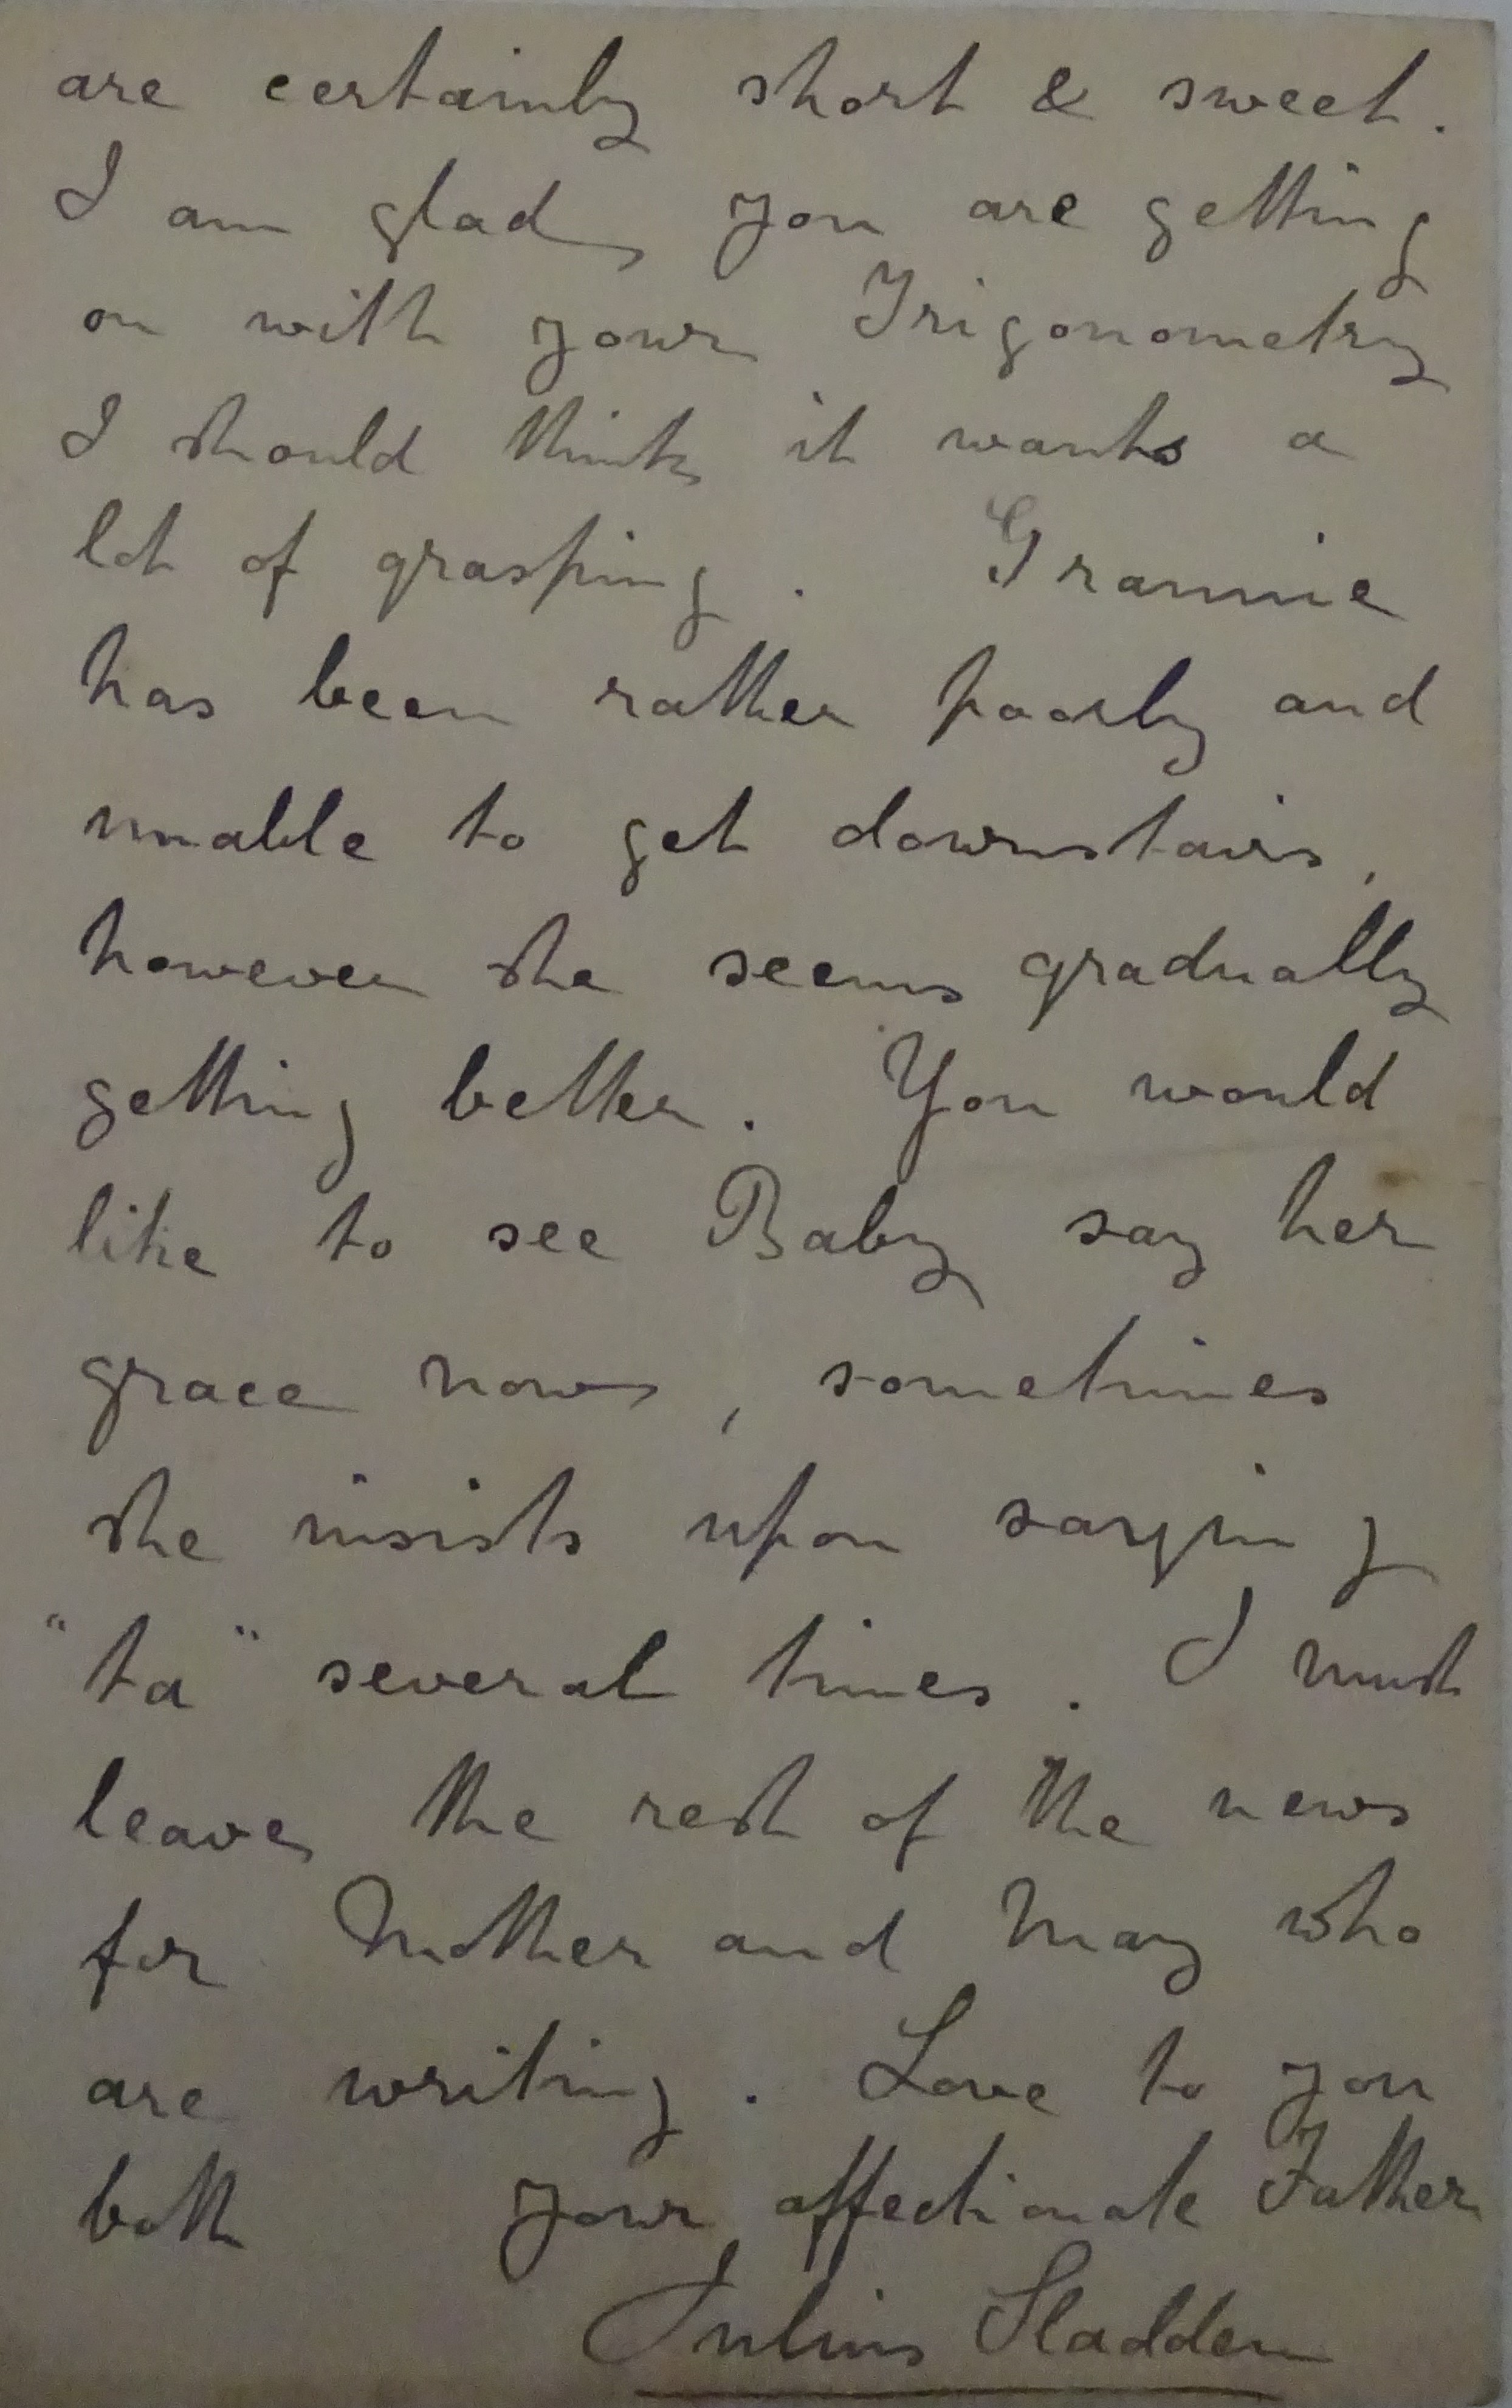 are certainly short & sweet.
I am glad you are getting
on with your Trigonometry
I should think it wants a
lot of grasping. Grannie
has been rather poorly and
unable to get downstairs,
however she seems gradually
getting better. You would
like to see Baby say her
grace now, sometimes
she insists upon saying
"ta" several times. I must
leave the rest of the news
for Mother and May who
are writing. Love to you
both your affectionate Father
Julius Sladden